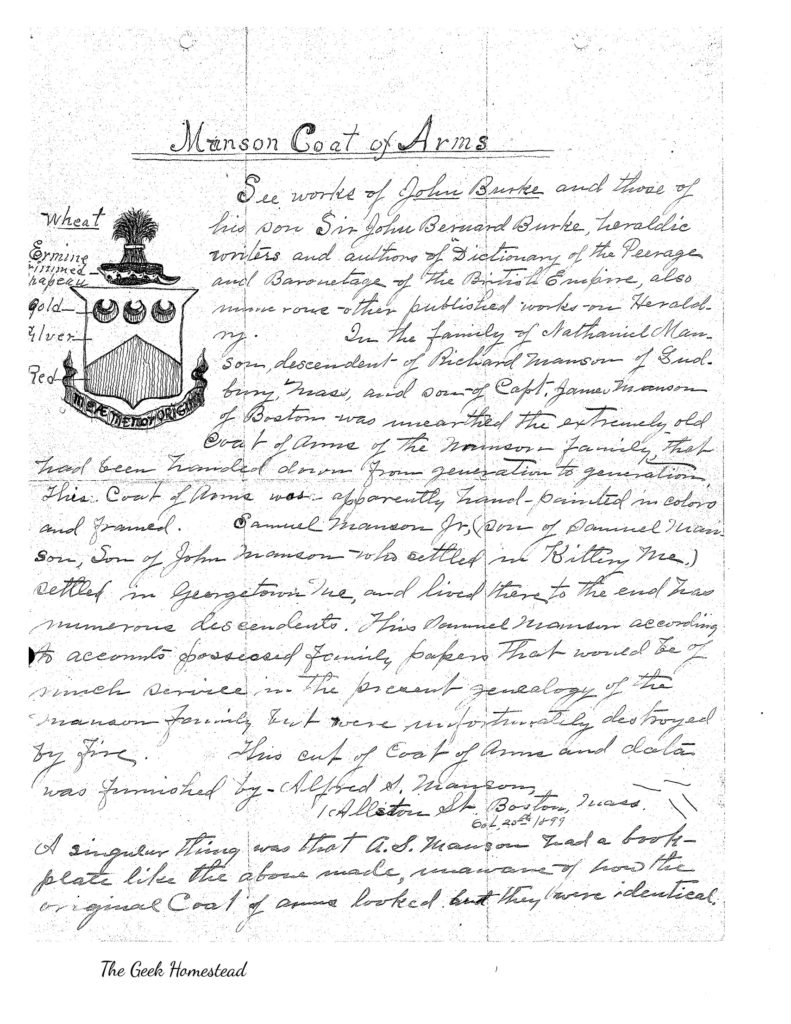 Manson Coat of Arms
See works of John Burke and those of
his son Sir John Bernard Burke, heraldic
writers and authors of "Dictionary of the Peerage
and Baronetage of the British Empire, also
numerous other published works on Herald-
ry. In the family of Nathaniel Man-
son, descendent of Richard Manson of Sud-
bury, Mass, and son of Capt. James Manson
of Boston was unearthed the extremely old
Coat of Arms of the Manson family, that
had been handed down from generation to generation.
This Coat of Arms was apparently hand-painted in colors
and framed. Samuel Manson Jr, (son of Samuel Man-
son, Son of John Manson who settled in Kittery Me.)
settled in Georgetown Me, and lived there to the end has
numerous descendents. This Samuel Manson according
to accounts possessed family papers that would be of
much service in the present genealogy of the
Manson family but were unfortunately destroyed
by fire. This cut of Coat of Arms and data
was furnished by Alfred S. Manson,
Allston St. Boston, Mass.
25th 1899
A singular thing was that A.S. Manson had a book-
plate like the above made, unaware of how the
original Coat of arms looked but they were identical.
Wheat
Ermine
Trimmed
hapeau
Gold
ilver
Red
MEÆ MEMOR ORIGINIS
The Geek Homestead